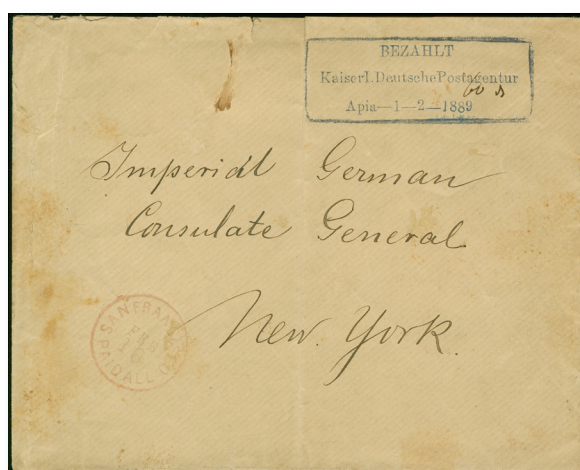 BEZAHLT
Kaiserl. Deutsche Postagentur
60 
Apia—1—2—1889
Imperial German
Consulate General
New York.
SAN FRAN
PAID ALL